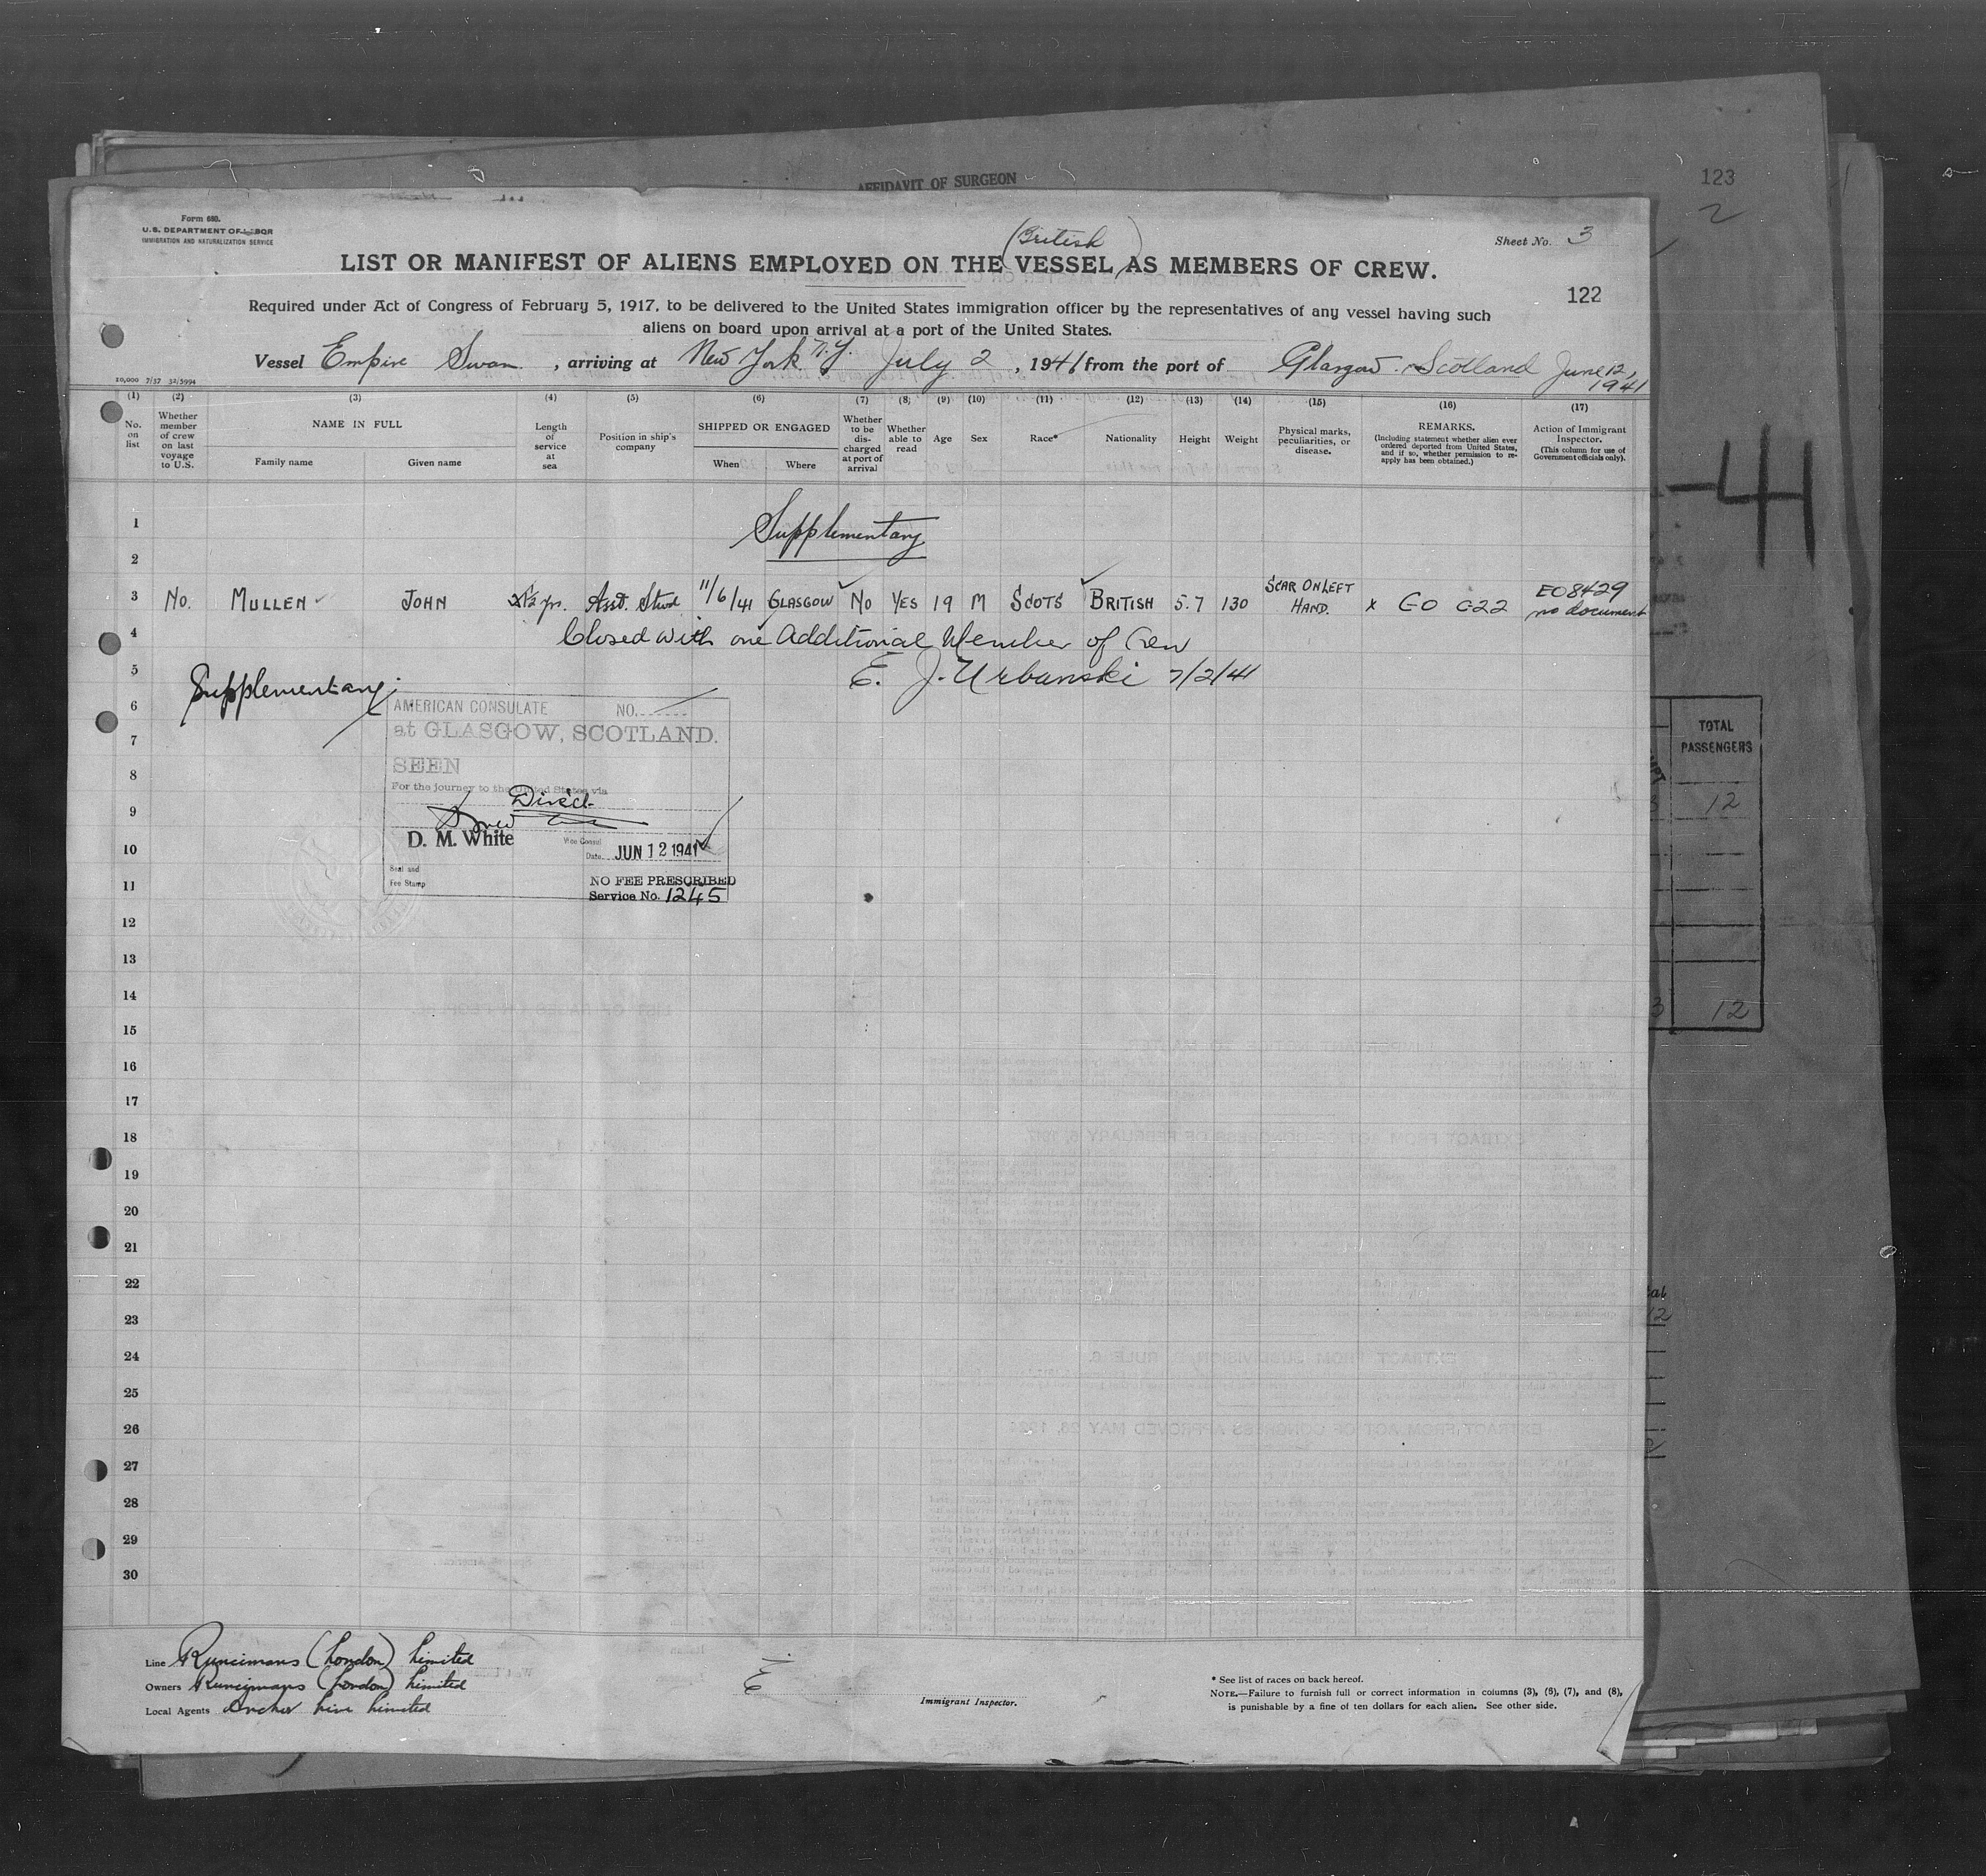 AFFIDAVIT OF SURGEON
123
2
Form 680.
U.S. DEPARTMENT OF LABOR
IMMIGRATION AND NATURALIZATION SERVICE
Sheet No. 3
(British)
LIST OR MANIFEST OF ALIENS EMPLOYED ON THE VESSEL, AS MEMBERS OF CREW.
122
Required under Act of Congress of February 5, 1917, to be delivered to the United States immigration officer by the representatives of any vessel having such
aliens on board upon arrival at a port of the United States.
Vessel Empire Swan, arriving at New York N.Y. July 2, 1941 from the port of Glasgow. Scotland June 12, 1941
10,000 7/37
(1) (2) (3) (4) (5) (6) (7) (8) (9) (10) (11) (12) (13) (14) (15) (16) (17)
No. on list
Whether member of crew on last voyage to U.S.
NAME IN FULL
Family name Given name
Length of service at sea
Position in ship's company
SHIPPED OR ENGAGED
When Where
Whether to be discharged at port of arrival
Whether able to read
Age
Sex
Race*
Nationality
Height
Weight
Physical marks, peculiarities, or disease.
REMARKS.
(Including statement whether alien ever ordered deported from United States, and if so, whether permission to reapply has been obtained.)
Action of Immigrant Inspector.
(This column for use of Government officials only).
-41
1
Supplementary
2
3 No. MULLEN JOHN 1/2 yrs. Asst. Stwd 11/6/41 GLASGOW No YES 19 M SCOTS BRITISH 5.7 130 SCAR ON LEFT HAND. x GO 622 E08429 no document
4 Closed with one Additional Member of Crew
5 E. J. Urbanski 7/2/41
Supplementary.
6
7
8
9
10
11
12
13
14
15
16
17
18
19
20
21
22
23
24
25
26
27
28
29
30
AMERICAN CONSULATE NO.
at GLASGOW, SCOTLAND.
SEEN
For the journey to the United States via
Direct
D. M. White
Vice Consul
Date JUN 12 1941
Seal and
Fee Stamp
NO FEE PRESCRIBED
Service No. 1245
TOTAL
PASSENGERS
12
3 12
12
Line Runcimans (London) Limited
Owners Runcimans (London) Limited
Local Agents Anchor Line Limited
Immigrant Inspector.
* See list of races on back hereof.
NOTE.—Failure to furnish full or correct information in columns (3), (6), (7), and (8),
is punishable by a fine of ten dollars for each alien. See other side.